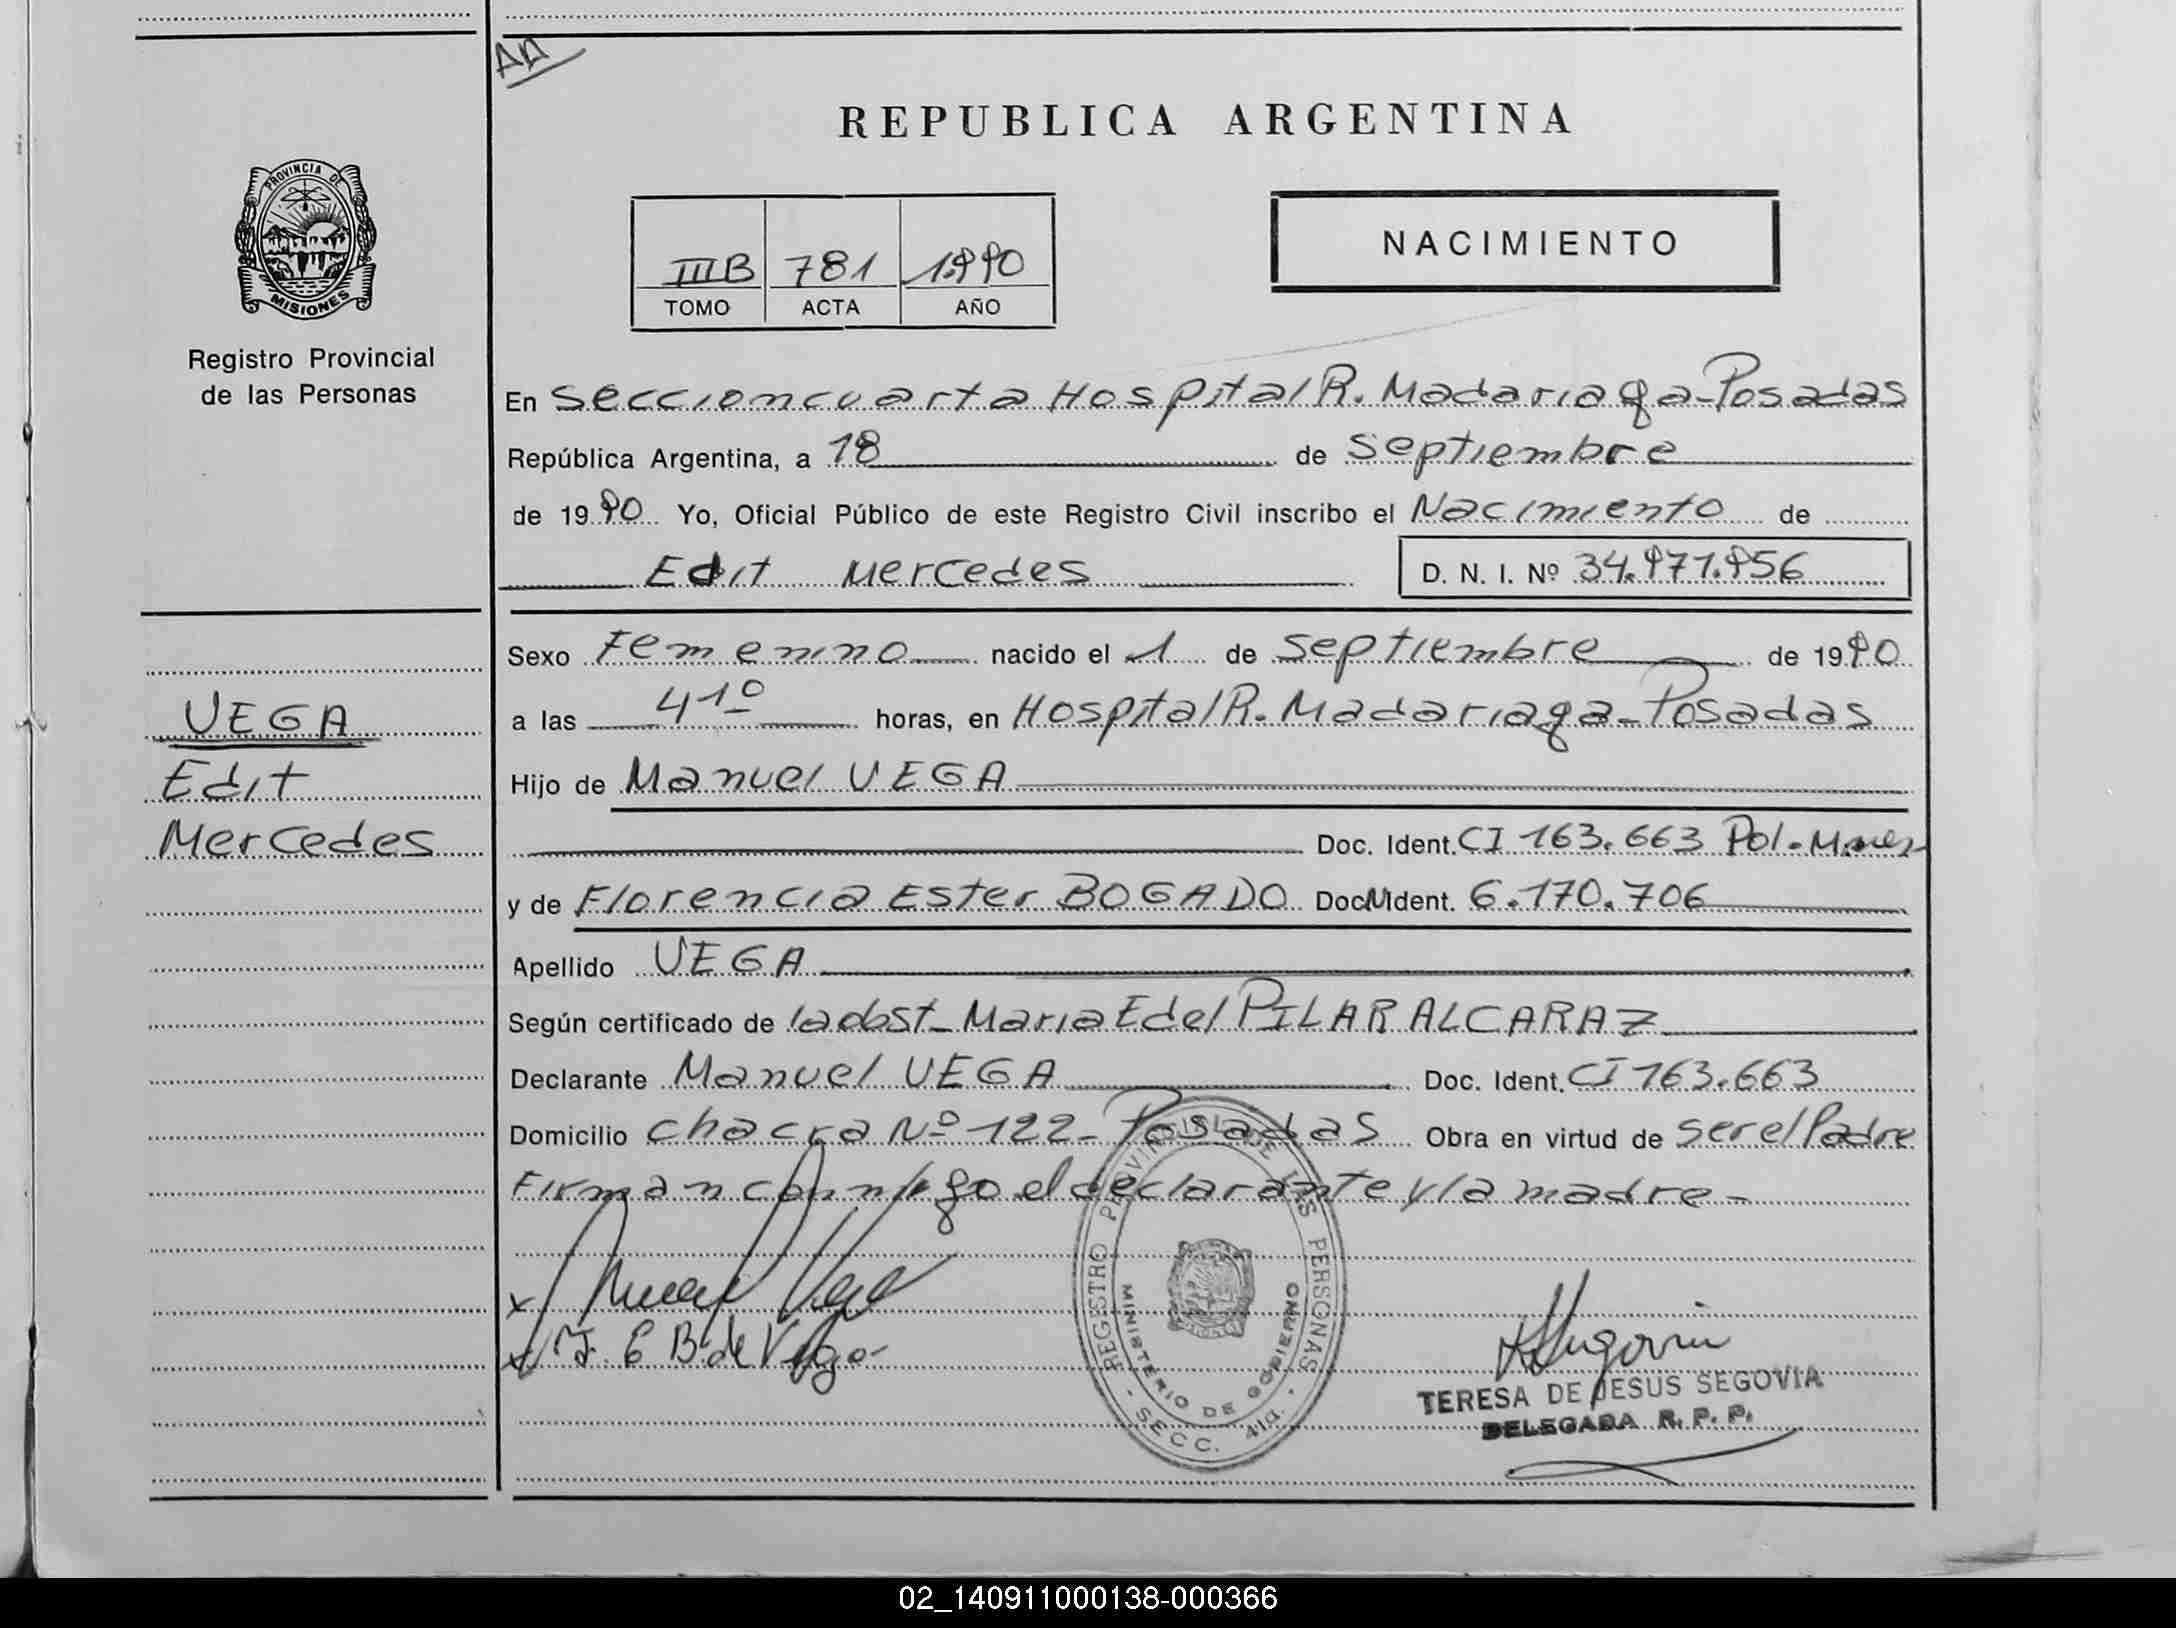 AD
REPUBLICA ARGENTINA
PROVINCIA DE
MISIONES
Registro Provincial
de las Personas
IIIB 781 1.990
TOMO ACTA AÑO
NACIMIENTO
En Seccion cuarta Hospital R. Madariaga - Posadas
República Argentina, a 18 de Septiembre
de 1990 Yo, Oficial Público de este Registro Civil inscribo el Nacimiento de
Edit Mercedes D. N. I. Nº 34.971.956
Sexo Femenino nacido el 1 de Septiembre de 1990
a las 41º horas, en Hospital R. Madariaga - Posadas
Hijo de Manuel VEGA
Doc. Ident. CI 163.663 Pol.
y de Florencia Ester BOGADO Doc. Ident. 6.170.706
Apellido VEGA
Según certificado de la obst - Maria E del PILAR ALCARAZ
Declarante Manuel VEGA Doc. Ident. CI 163.663
Domicilio chacra Nº 122 - Posadas Obra en virtud de ser el Padre
Firman conmigo el declarante y la madre -
VEGA
Edit
Mercedes
x Vega
x F. E B. de Vega
REGISTRO PROVINCIAL DE LAS PERSONAS
MINISTERIO DE GOBIERNO
- SECC. 41a. -
TERESA DE JESUS SEGOVIA
DELEGADA R. P. P.
02_140911000138-000366